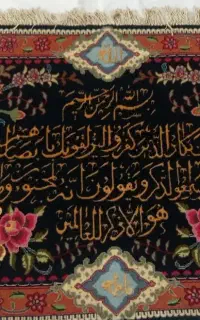 بسم الله الرحمن الرحیم
یکاد الذین کفروا لیزلقونک بابصارهم
سمعوا الذکر و یقولون انه لمجنون و
هو الا ذکر للعالمین